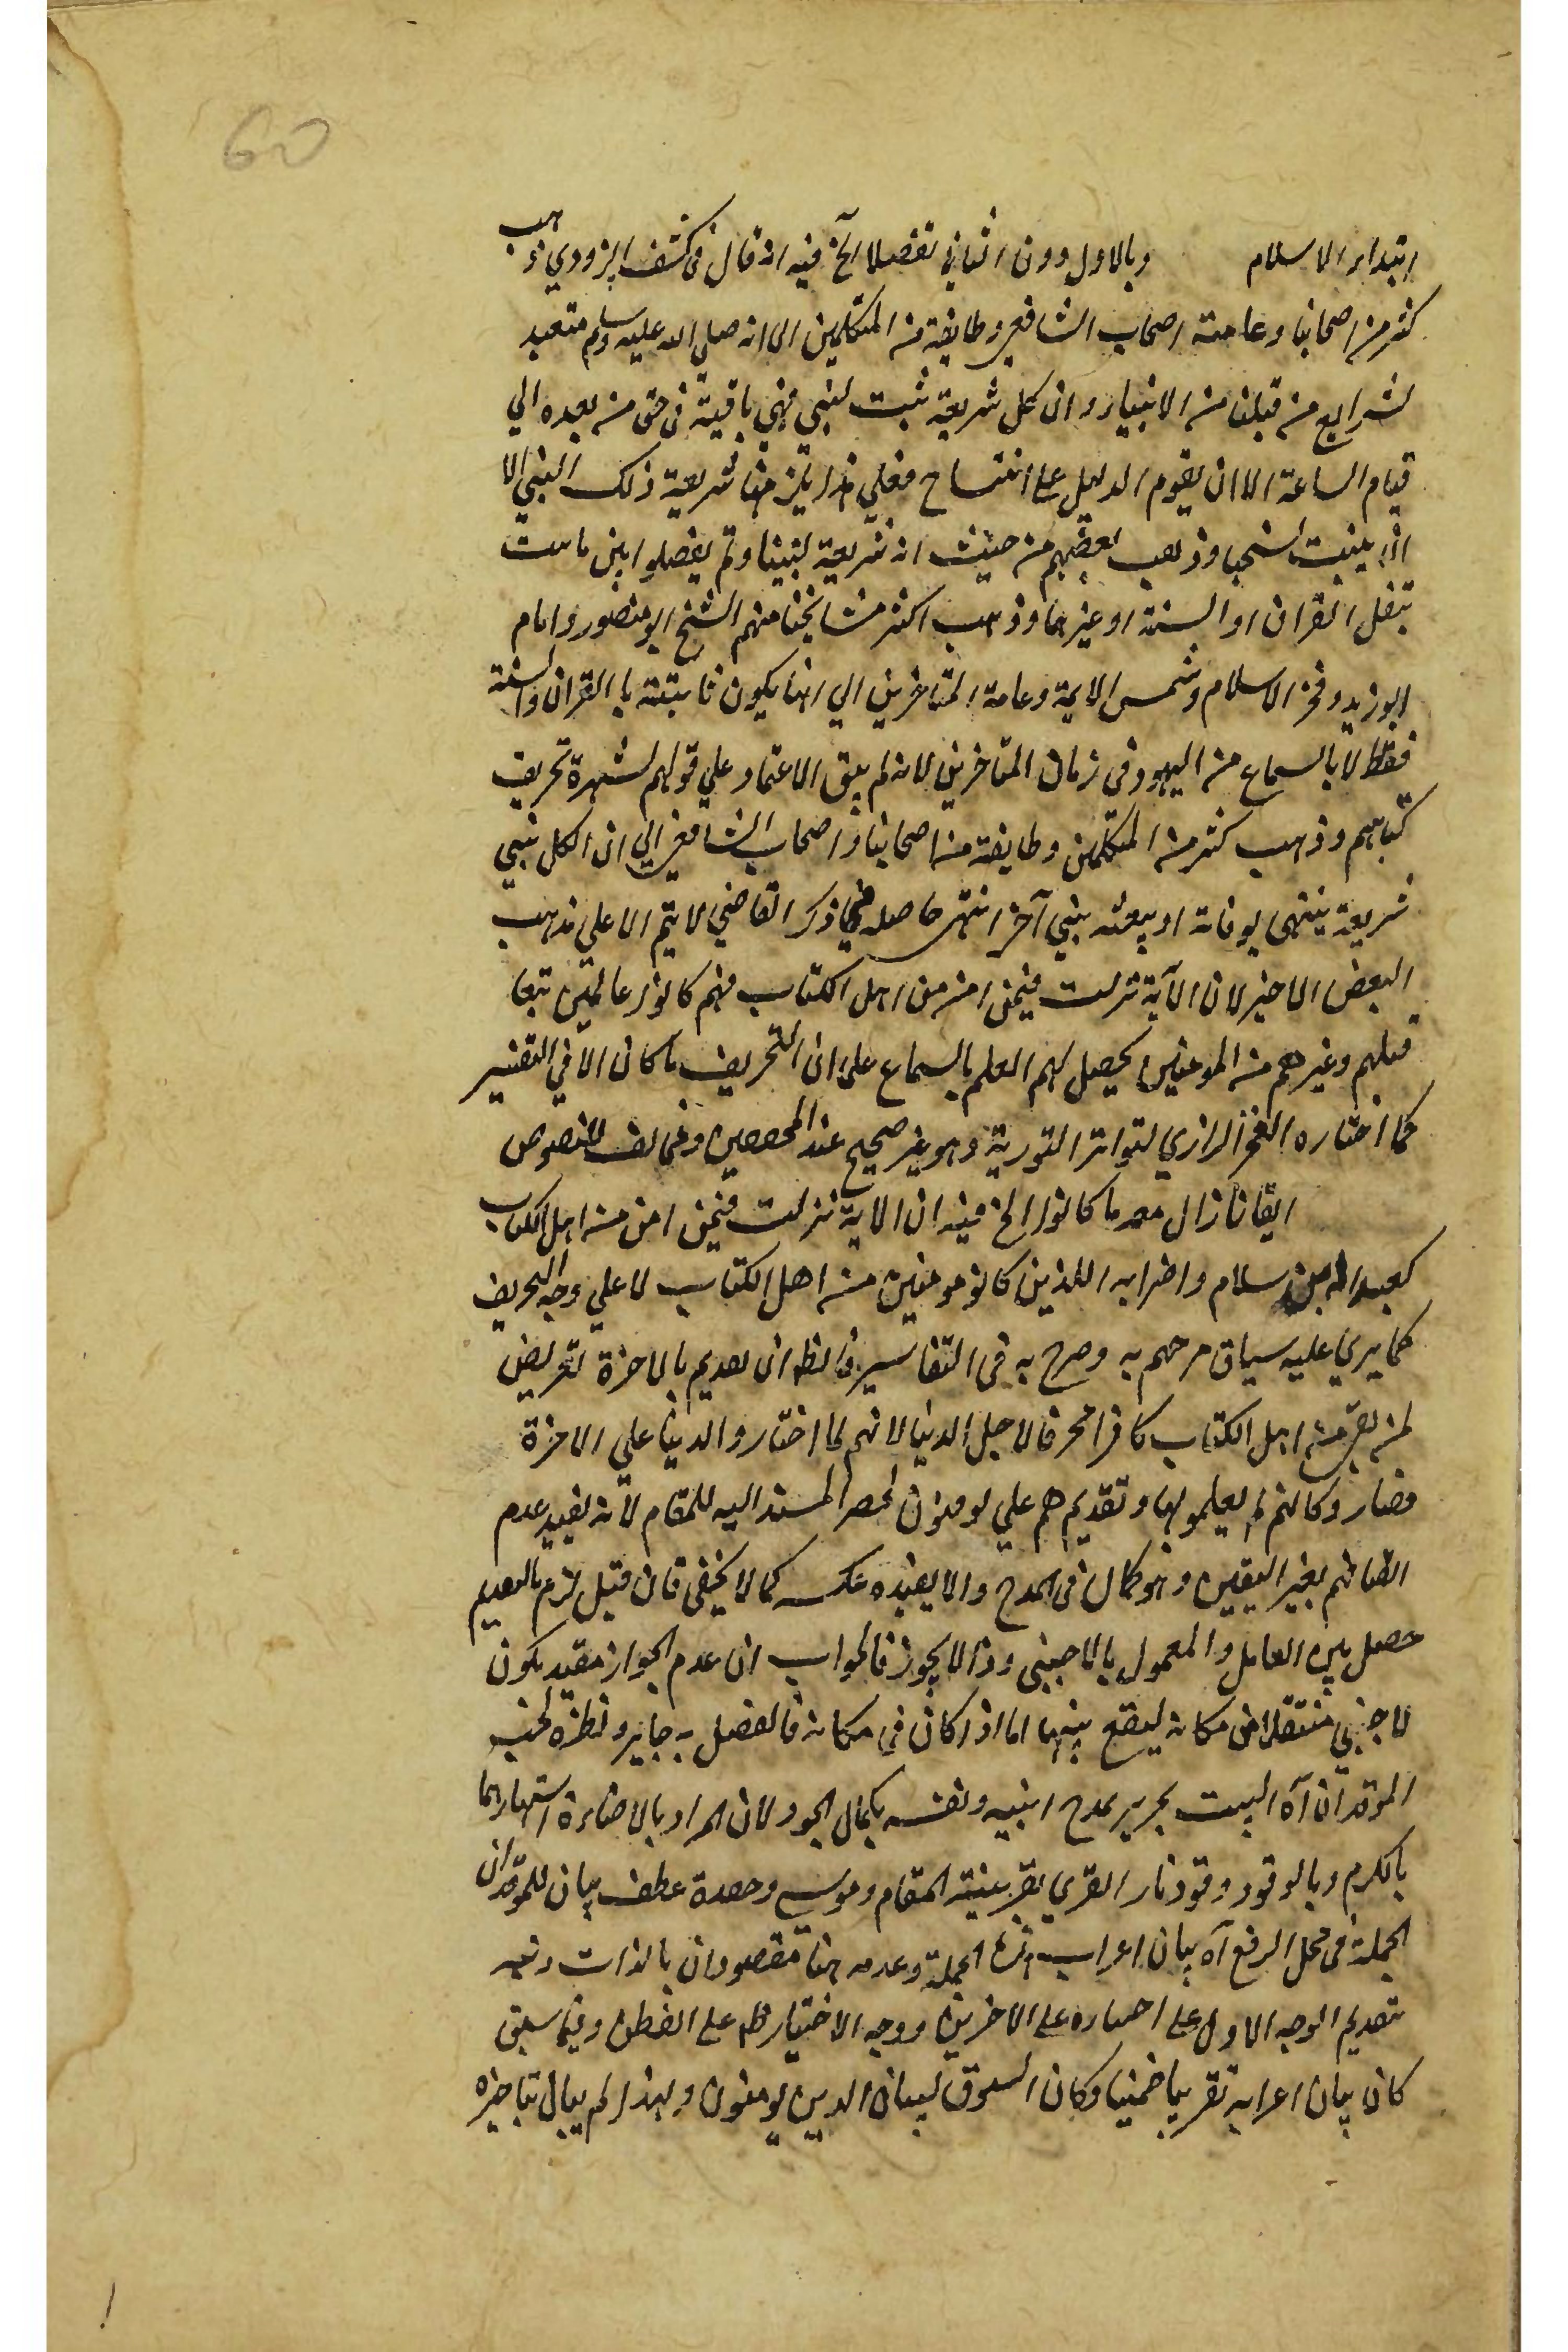 60
ابتداء الاسلام وبالاول دون الثاني تفصيلا الخ فيه انه قال في كشف البزدوي ذهب
كثير من اصحابنا وعامة اصحاب الشافعي وطايفة من المتكلمين الى انه صلي الله عليه وسلم متعبد
لشرايع من قبلنا من الانبياء وان كل شريعة ثبت لنبي فهي باقية في حق من بعده الي
قيام الساعة الا ان يقوم الدليل على انتساخ فعلي هذا يلزمنا شريعة ذلك النبي الا
اذا وذهب بعضهم من حيث انه شريعة لنبينا ولم يفصلوا بين ما يثبت
بنقل القران او السنة او غيرهما وذهب اكثر مشايخنا منهم الشيخ ابو منصور وامام
ابو زيد وفخر الاسلام وشمس الايمة وعامة المتاخرين الي انها يكون ثابتة با القران والسنة
فقط لا بالسماع من اليهود في زمان المتاخرين لانه لم يبق الاعتماد علي قولهم لشهرة تحريف
كتباهم وذهب كثير من المتكلمين وطايفة من اصحابنا واصحاب الشافعي الي ان الكل نبي
شريعة ينتهى بوفاته او ببعثه بنبي آخر انتهى حاصله فما ذكر القاضي لا يتم الا علي مذهب
البعض الاخير لان الآية نزلت فيمن امن من اهل الكتاب فهم كانوا عالمين بتعا
قبلهم وغيرهم من المومنين يحصل لهم العلم بالسماع على ان التحريف ما كان الا في التفسير
كما اختاره الفخر الرازي لتواتر التورية وهو غير صحيح عند المحققين ومخالف للنصوص
ايقانا زال معه ما كانوا الخ فيه ان الاية نزلت فيمن امن من اهل الكتاب
كعبد الله بن سلام واضرابه اللذين كانو مومنين من اهل الكتاب لا علي وجه التحريف
كما يري عليه سياق مرحهم به وصرح به في التفاسير فالظ ان تقديم بالاخرة تعريض
لمن بقي من اهل الكتاب كافرا محرفا لاجل الدنيا لانهم لما اختاروا الدنيا علي الاخرة
فصار وكانهم لم يعلمو بها وتقديم هم علي يومنون لحصر المسند اليه للمقام لانه يفيد عدم
اتصافهم بغير اليقين وهو كمال في المدح والا يفيده عكسه كما لا يخفى فان قيل لزم بالتقديم
حصل بين العامل والمعمول بالاجنبى وذا لا يجوز فالجواب ان عدم الجواز مقيد بكون
لاجنبي منتقلا من مكانه ليقع بينهما اما اذا كان في مكانه فالفصل به جايز ونظيره لحب
الموقدان آه البيت بجرير يمدح ابنيه ونفسه بكمال الجود لان المراد بالاضاءة اشتهارهما
بالكرم وبالوقود وقود نار القري بقرينة المقام وموسي وحعدة عطف بيان للموقدان
الجملة في محل الرفع آه بيان اعراب الجملة وعدمه هنا مقصودان بالذات
بتقديم الوجه الاول على اختياره على الاخرين ووجه الاختيار ظه على الفطن وفيما سبق
كان بيان اعرابه تقريبا ضمنيا وكان السوق لبيان الذين يومنون ولهذا لم يبال بتاخيره